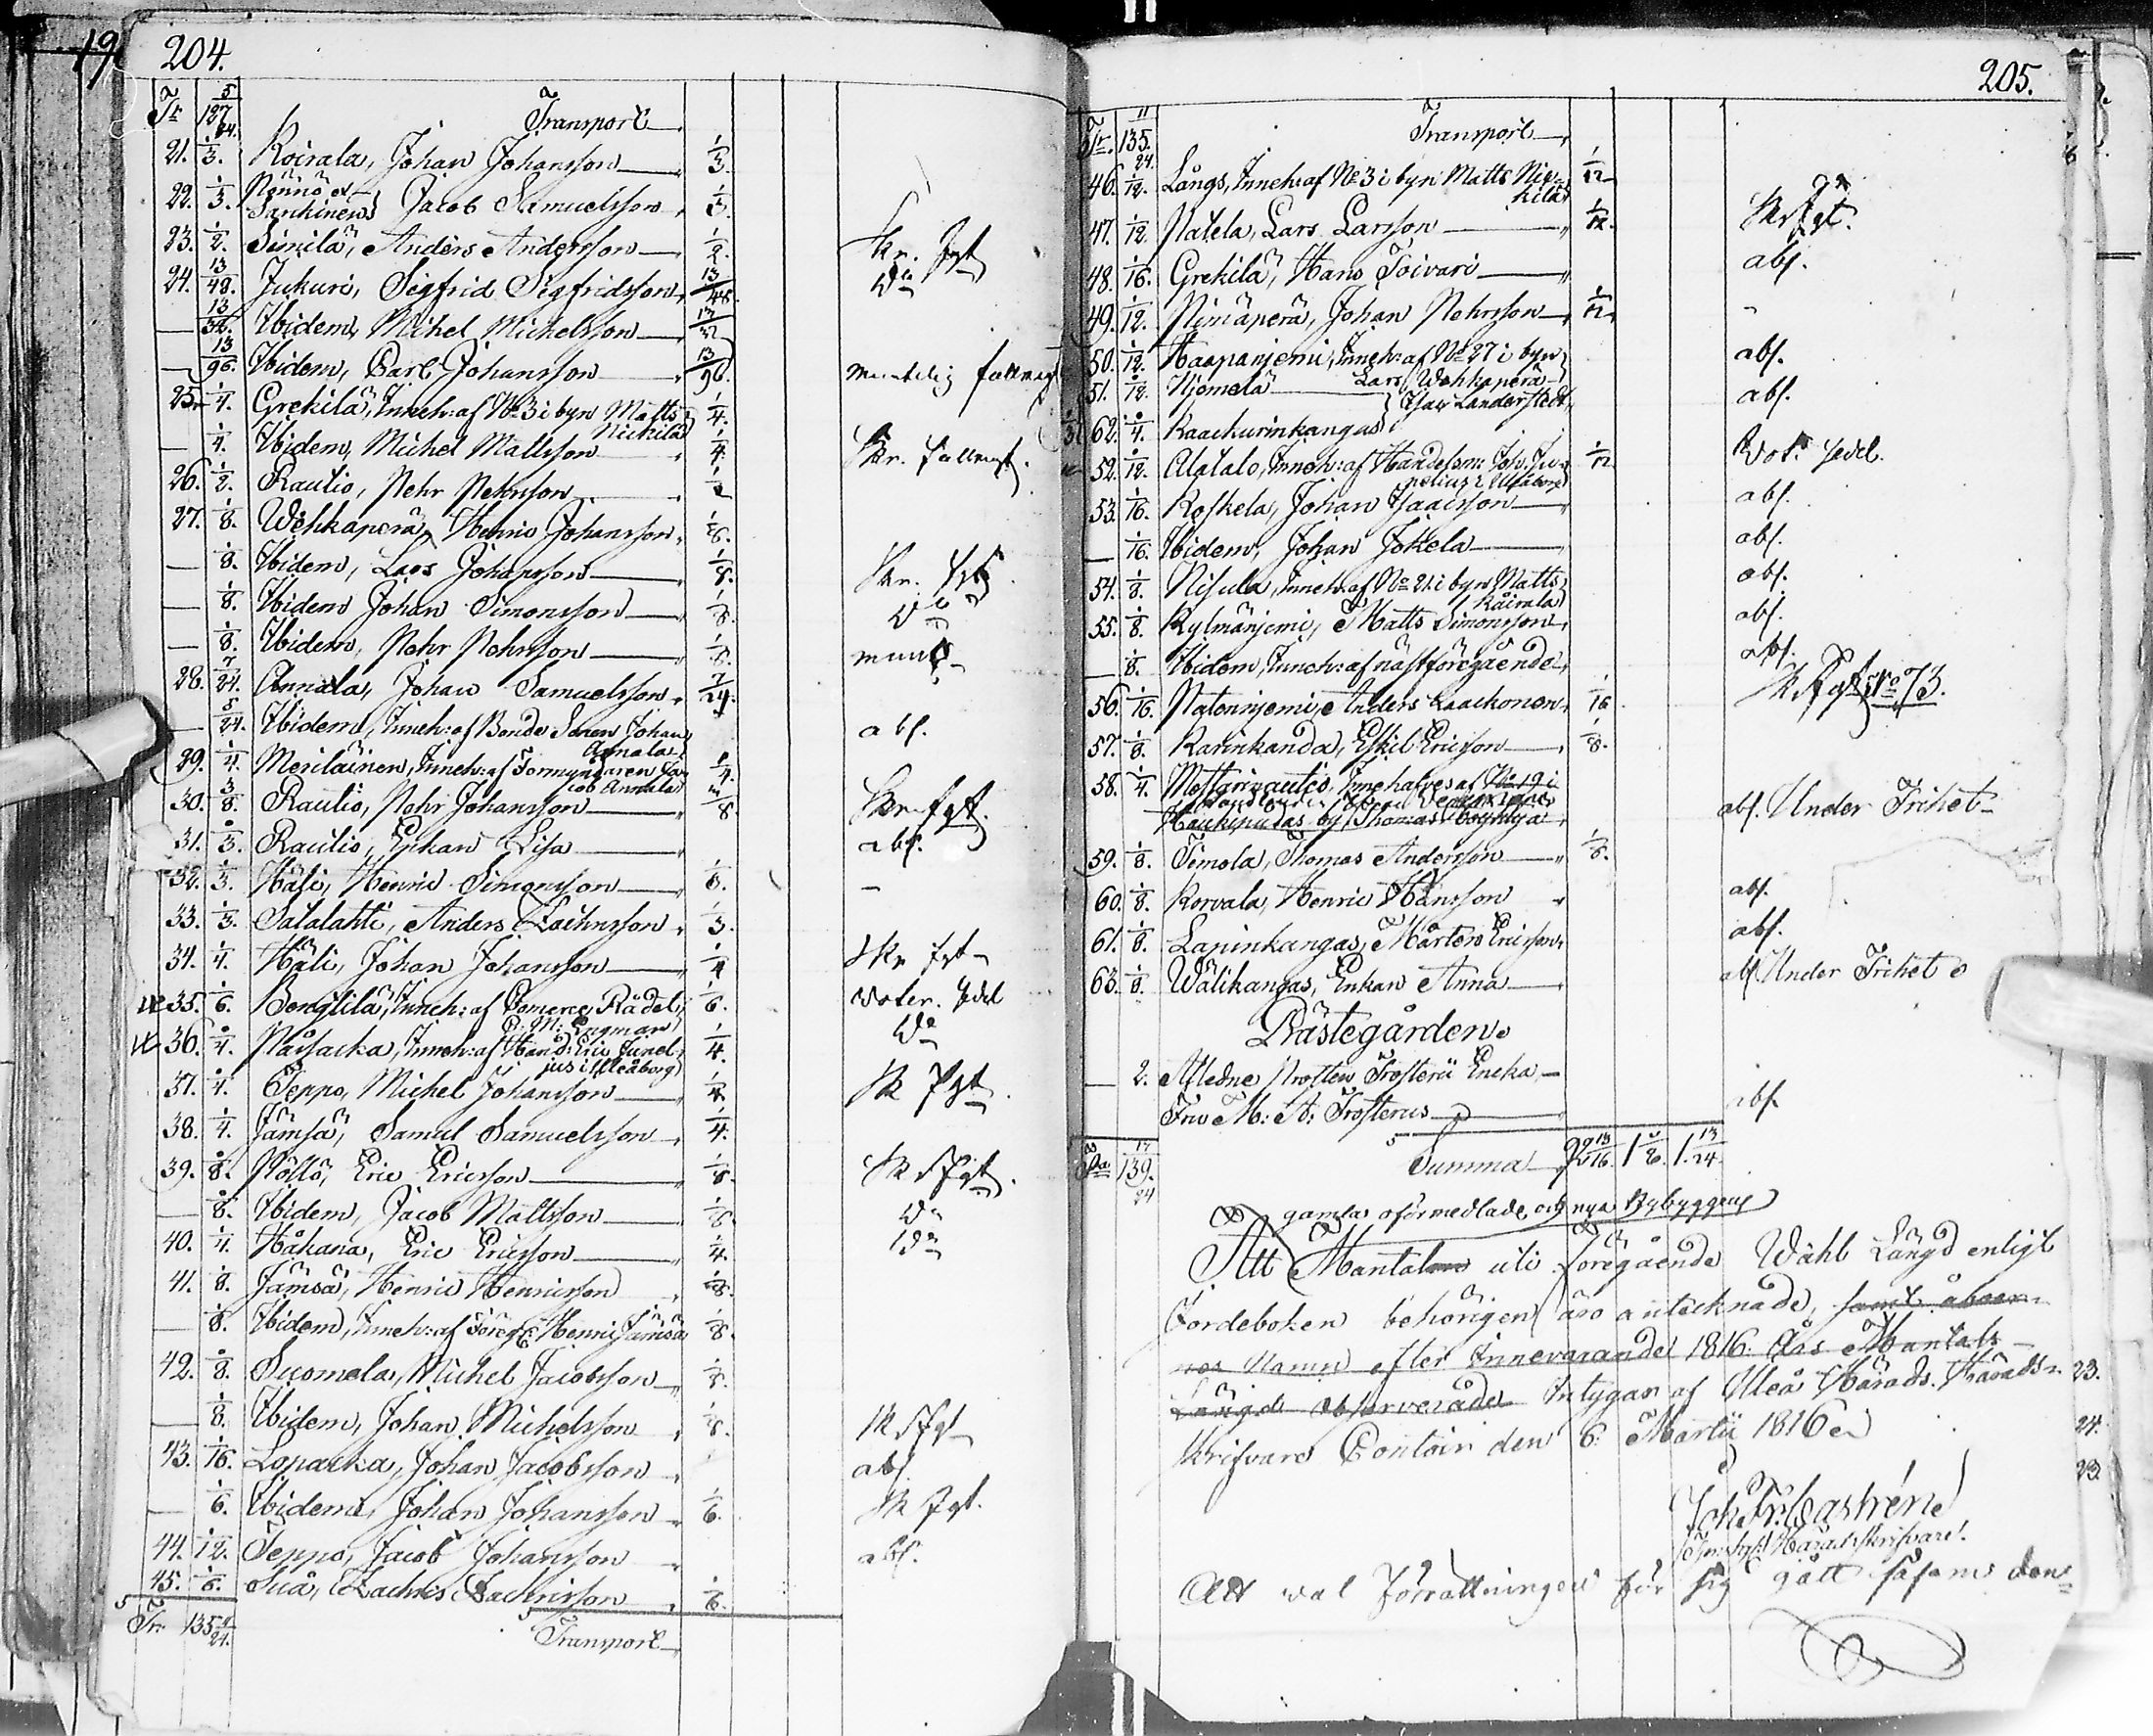 204.
Tr 127 5/24. Transport
21. 1/3. Koirala, Johan Johansson 1/3.
22. 1/3. Nönnö el. Sankinen} Jacob Samuelsson 1/3.
23. 1/2. Similä, Anders Andersson 1/2. Skr. fgt
24. 13/48. Jukuri, Segfrid Segfridsson 13/48. Do
— 13/32. Ibidem, Michel Michelsson 13/32
— 13/96. Ibidem, Carl Johansson 13/96. muntelig fullmagt
25. 1/4. Grekilä, Inneh: af No 3 i byn Matts 1/4.
Nickilä
— 1/4. Ibidem, Michel Mattsson 1/4. Skr. fullmgt.
26. 1/2. Rautio, Pehr Pehrsson 1/2
27. 1/8. Wehkaperä, Henric Johansson 1/8.
— 1/8. Ibidem, Lars Johansson 1/8. Skr. fgt
— 1/8. Ibidem Johan Simonsson 1/8. Do
— 1/8. Ibidem, Pehr Pehrsson 1/8. munt
28. 7/24. Annala, Johan Samuelsson 7/24.
— 5/24. Ibidem, Inneh: af Bonde Sonen Johan abs.
Annala
29. 1/4. Meriläinen, Inneh: af Formyndaren Ja- 1/4.
cob Annala
30. 3/8. Rautio, Pehr Johansson 3/8 Skr fgt.
31. 1/3. Rautio, Enkan Lisa abs.
32. 1/3. Häli, Henric Simonsson 1/3. —
33. 1/3. Salalahti, Anders Zachrisson 1/3.
34. 1/4. Häli, Johan Johansson 1/4 Skr fgt
35. 1/6. Bengtilä, Inneh: af Comerce Rådet 1/6. Voter. Sedel
P. N: Engman
36. 1/4. Påssacka, Inneh: af Hand: Eric Junel- 1/4. Do
jus i Uleåborg
37. 1/4. Seppo, Michel Johansson 1/4 Sk fgt.
38. 1/4. Jämsä, Samuel Samuelsson 1/4.
39. 1/8. Pöllö, Eric Ericsson 1/8. Sk fgt.
— 1/8. Ibidem, Jacob Mattsson 1/8. Do
40. 1/4. Håkana, Eric Ericsson 1/4. Do
41. 1/8. Jämsä, Henric Henricsson 1/8.
— 1/8. Ibidem, Inneh: af Föreg: Henric Jämsä 1/8.
42. 1/8. Suomela, Michel Jacobsson 1/8.
— 1/8. Ibidem, Johan Michelsson 1/8. Sk fgt
43. 1/16. Lopacka, Johan Jacobsson abs
— 1/6. Ibidem, Johan Johansson 1/6. Sk fgt.
44. 1/12. Seppo, Jacob Johansson abs.
45. 1/6. Zachris Zachrisson 1/6.
Tr 135 11/24. Transport
205.
Tr. 135. 11/24. Transport
46. 1/12. Långs, Inneh: af No 3 i byn Matts Nic- 1/12
kilä
47. 1/12. Patela, Lars Larsson 1/12. Skr fgt.
48. 1/16. Grekilä, Hans Toivari abs.
49. 1/12. Niemäperä, Johan Pehrsson 1/12 -
50. 1/12. Haapaniemi, Inneh: af No 27 i byn abs.
Lars Wehkaperä
51. 1/12. Hjomelä abs.
Isac Landerstedt
62. 1/4. Kaackurinkangas
52. 1/12. Alatalo, Inneh: af Handelsm: Joh. Ju- 1/12 Vot. Sedel.
nelius i Uleåborg
53. 1/16. Koskela, Johan Isacsson abs.
— 1/16. Ibidem, Johan Jokela abs.
54. 1/8. Nisula, Inneh: af No 21 i byn Matts abs.
Koirala
55. 1/8. Kylmäniemi, Matts Simonsson abs.
— 1/8. Ibidem, Inneh: af nästföregående abs.
56. 1/16. Pateniemi, Anders Kaackonen 1/16 Sk fgt No 73.
57. 1/8. Karinkanda, Eskil Ericsson 1/8.
58. 1/4. Innehafves af No 19 i abs. Under Frihet
Haukipudas by Thomas
59. 1/8. Timola, Thomas Andersson 1/8.
60. 1/8. Korvala, Henric Hansson abs.
61. 1/8. Laninkangas, Mårten Ericsson abs.
63. 1/8. Wälikangas, Enkan Anna abs. Under Frihet
Prästegården.
— 2. Afledne Prosten Frosterii Encka
Fru M: A: Frosterus abs.
Sa. 139. 17/24 Summa 13/16. 1/8. 1. 13/24.
gamla oförmedlade och nya Nybyggens
Att Mantalen uti föregående Wahl Längd enligt
Jordeboken behörigen äro antecknade, samt åboer-
nas Namn efter Innevarande 1816 Års Mantals-
Längd observerade Intygas af Uleå Härads Härads- 23.
skrifvare Contoir den 6 Martii 1816. 24.
23.
Joh. Fr: Castrén
Häradsskrifvare.
Att val förrättningen för sig gått såsom den